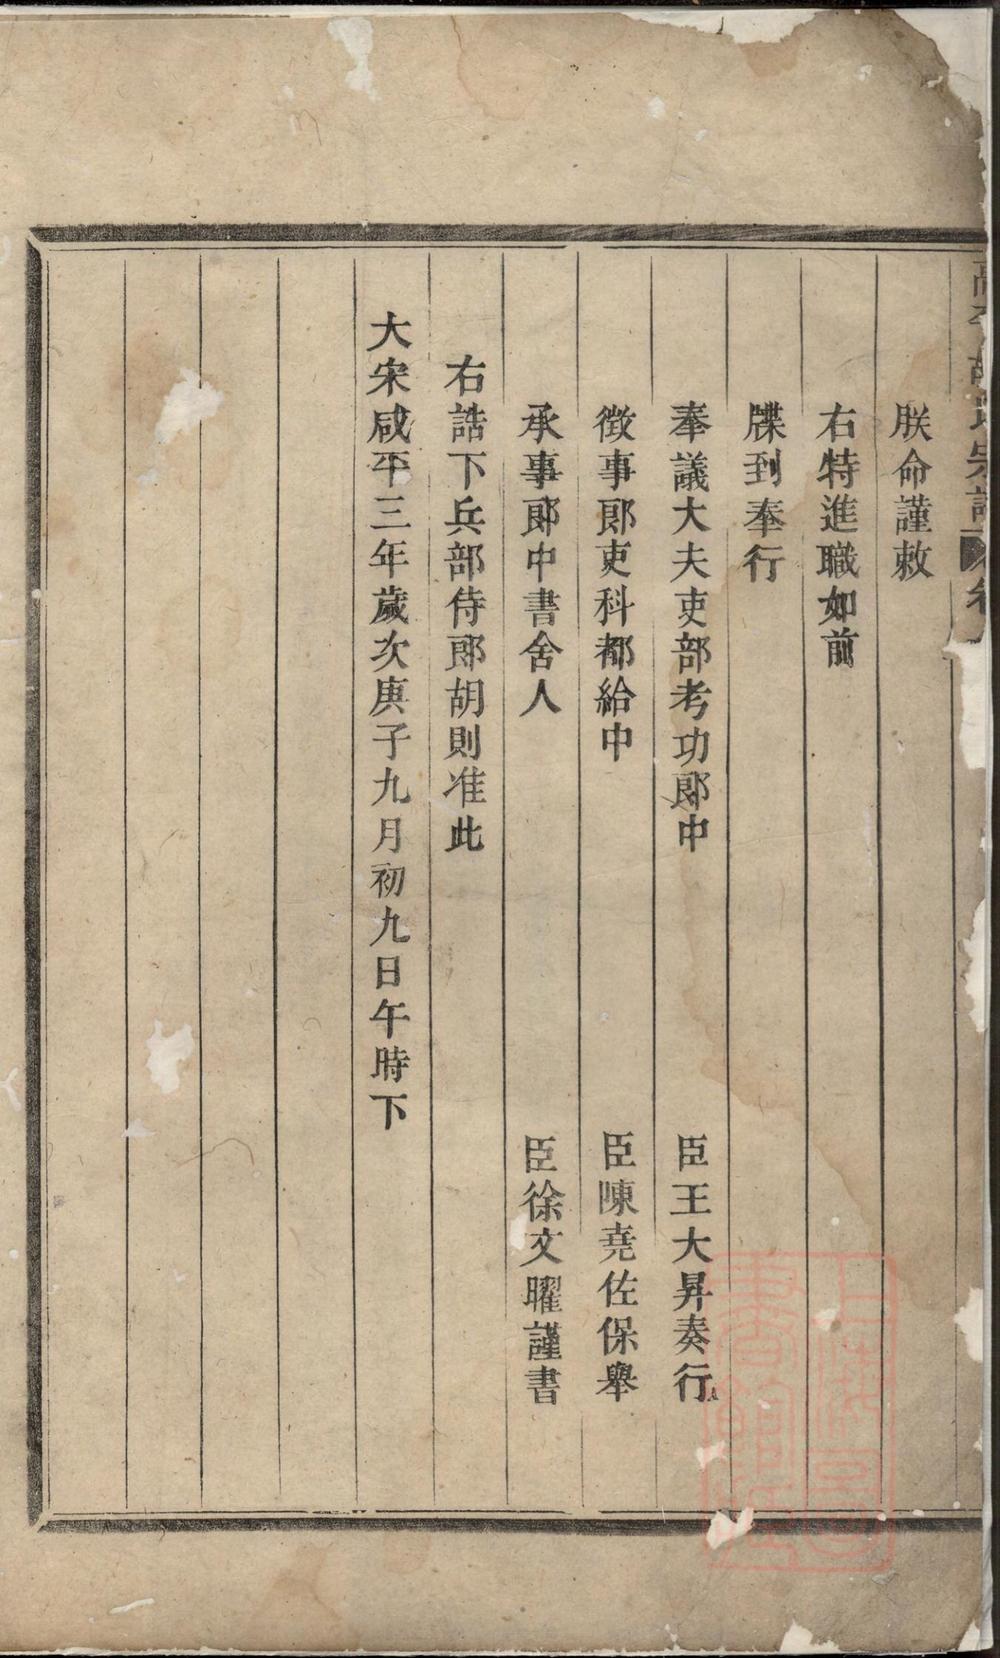 胡氏宗譜
朕命謹敕
右特進職如前
牒到奉行
奉議大夫吏部考功郎中 臣王大昇奏行
徴事郎吏科都給中 臣陳堯佐保舉
承事郎中書舍人 臣徐文曜謹書
右誥下兵部侍郎胡則准此
大宋咸平三年歲次庚子九月初九日午時下
上海圖書館藏